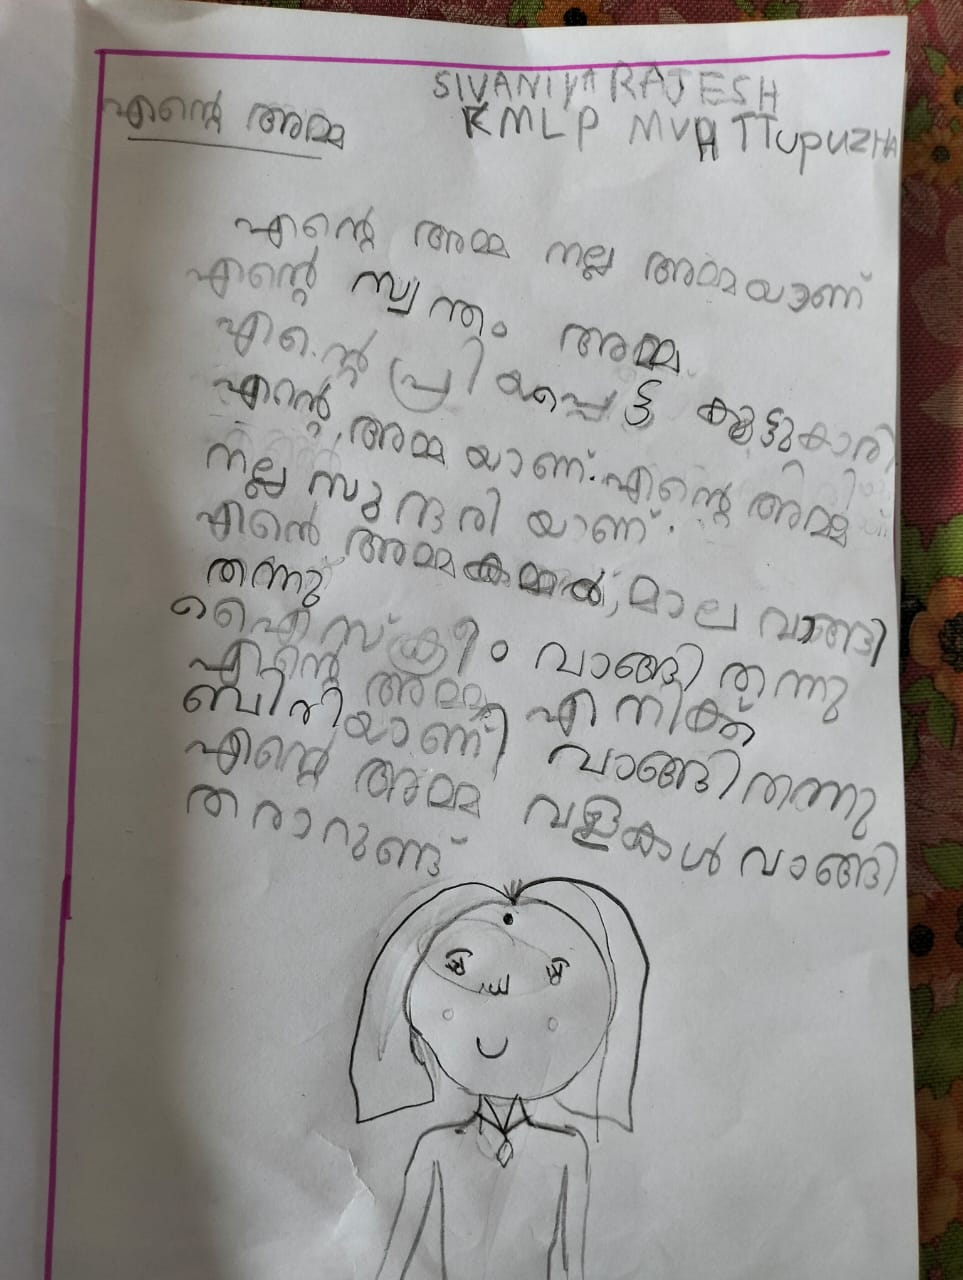 SIVANIYA RAJESH
KMLP MUVATTUPUZHA
എന്റെ അമ്മ
എന്റെ അമ്മ നല്ല അമ്മയാണ്
എന്റെ സ്വന്തം അമ്മ.
എന്റെ പ്രിയപ്പെട്ട കൂട്ടുകാരി
എന്റെ അമ്മ യാണ്. എന്റെ അമ്മ
നല്ല സുന്ദരി യാണ്.
എന്റെ അമ്മ കമ്മൽ, മാല വാങ്ങി
തന്നു
ഐസ്ക്രീം വാങ്ങി തന്നു
എന്റെ അമ്മ എനിക്ക്
ബിരിയാണി വാങ്ങി തന്നു
എന്റെ അമ്മ വളകൾ വാങ്ങി
തരാറുണ്ട്